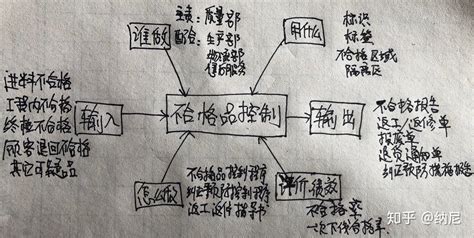 谁做
主责:质量部
配合:生产部
物流部
售后服务
用什么
标识
标签
不合格区域
隔离区
进料不合格
工程内不合格
终检不合格
顾客退回不合格
其它可疑品
输入
不合格品控制
输出
不合格报告
返工/返修单
报废单
退货通知单
纠正预防措施报告
怎么做
不合格品控制程序
纠正预防控制程序
返工返修指导书
评价绩效
不合格率
一次下线合格率
知乎 @纳尼